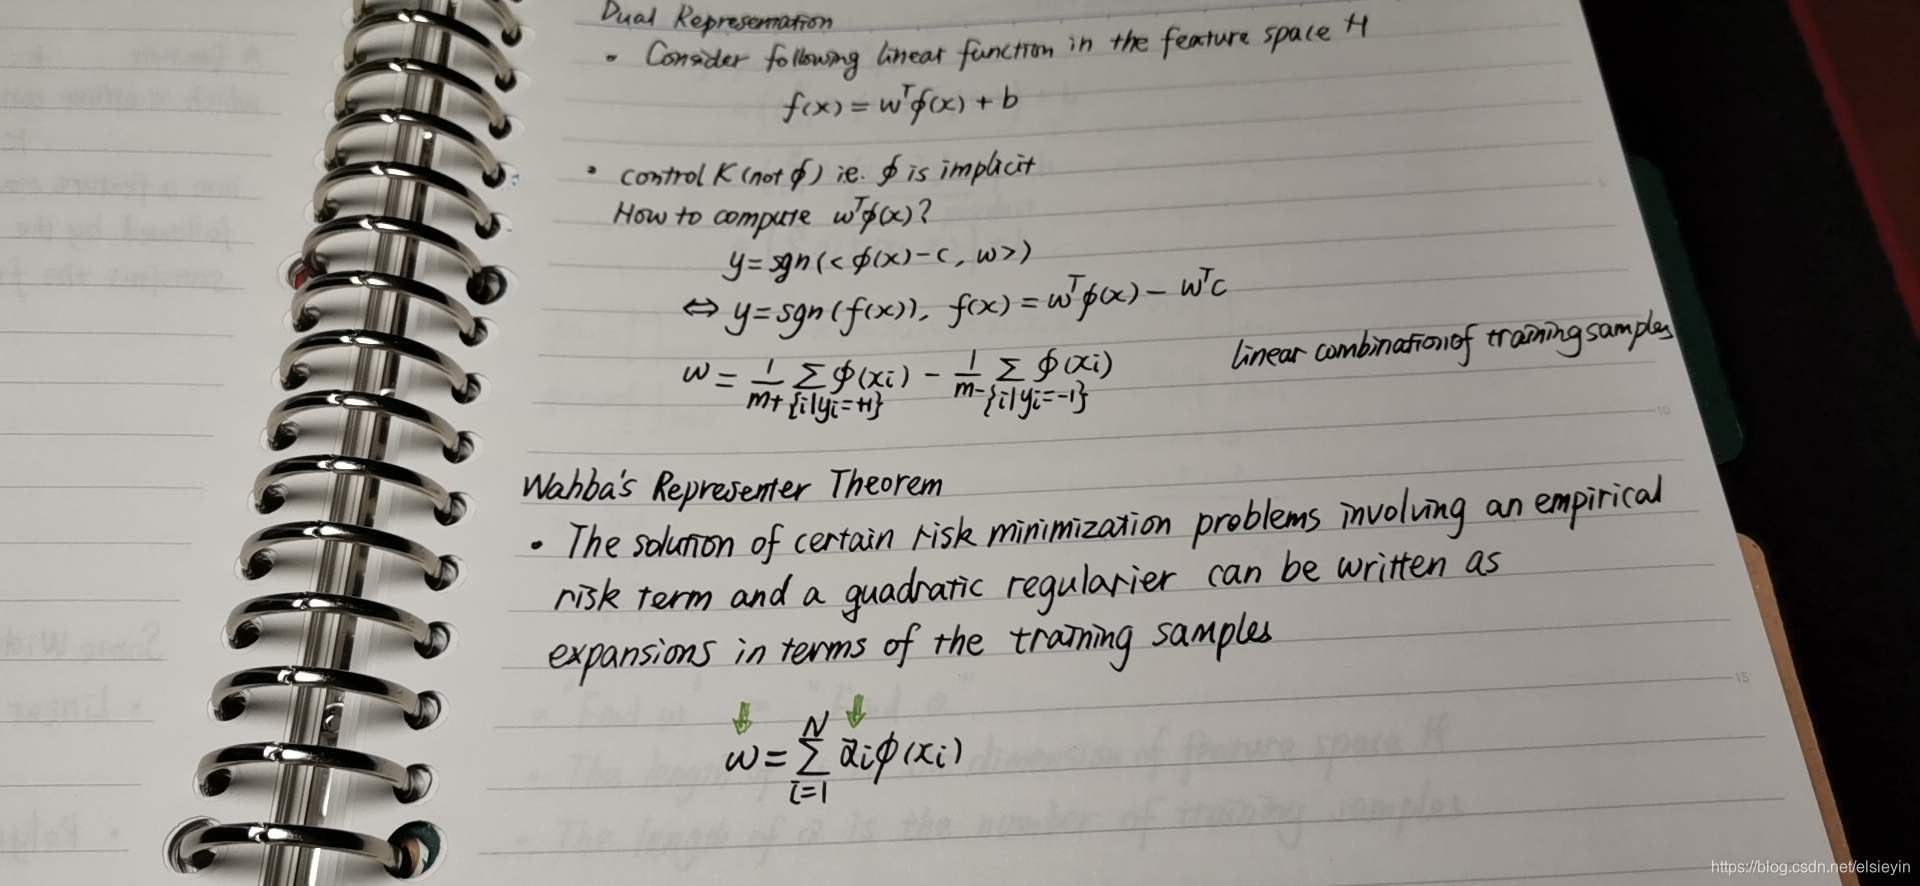 Dual Represemation
• Consider following linear function in the feature space H
f(x) = wᵀϕ(x) + b
• control K (not ϕ) ie. ϕ is implicit
How to compute wᵀϕ(x)?
y = sgn(<ϕ(x)-c, w>)
⇔ y = sgn(f(x)), f(x) = wᵀϕ(x) - wᵀc
linear combination of training samples
w = 1/m+ Σ{i|yi=+1} ϕ(xi) - 1/m- Σ{i|yi=-1} ϕ(xi)
Wahba's Representer Theorem
• The solution of certain risk minimization problems involving an empirical
risk term and a quadratic regularier can be written as
expansions in terms of the training samples
w = Σ_{i=1}^{N} aiϕ(xi)
5
10
15
https://blog.csdn.net/elsieyin